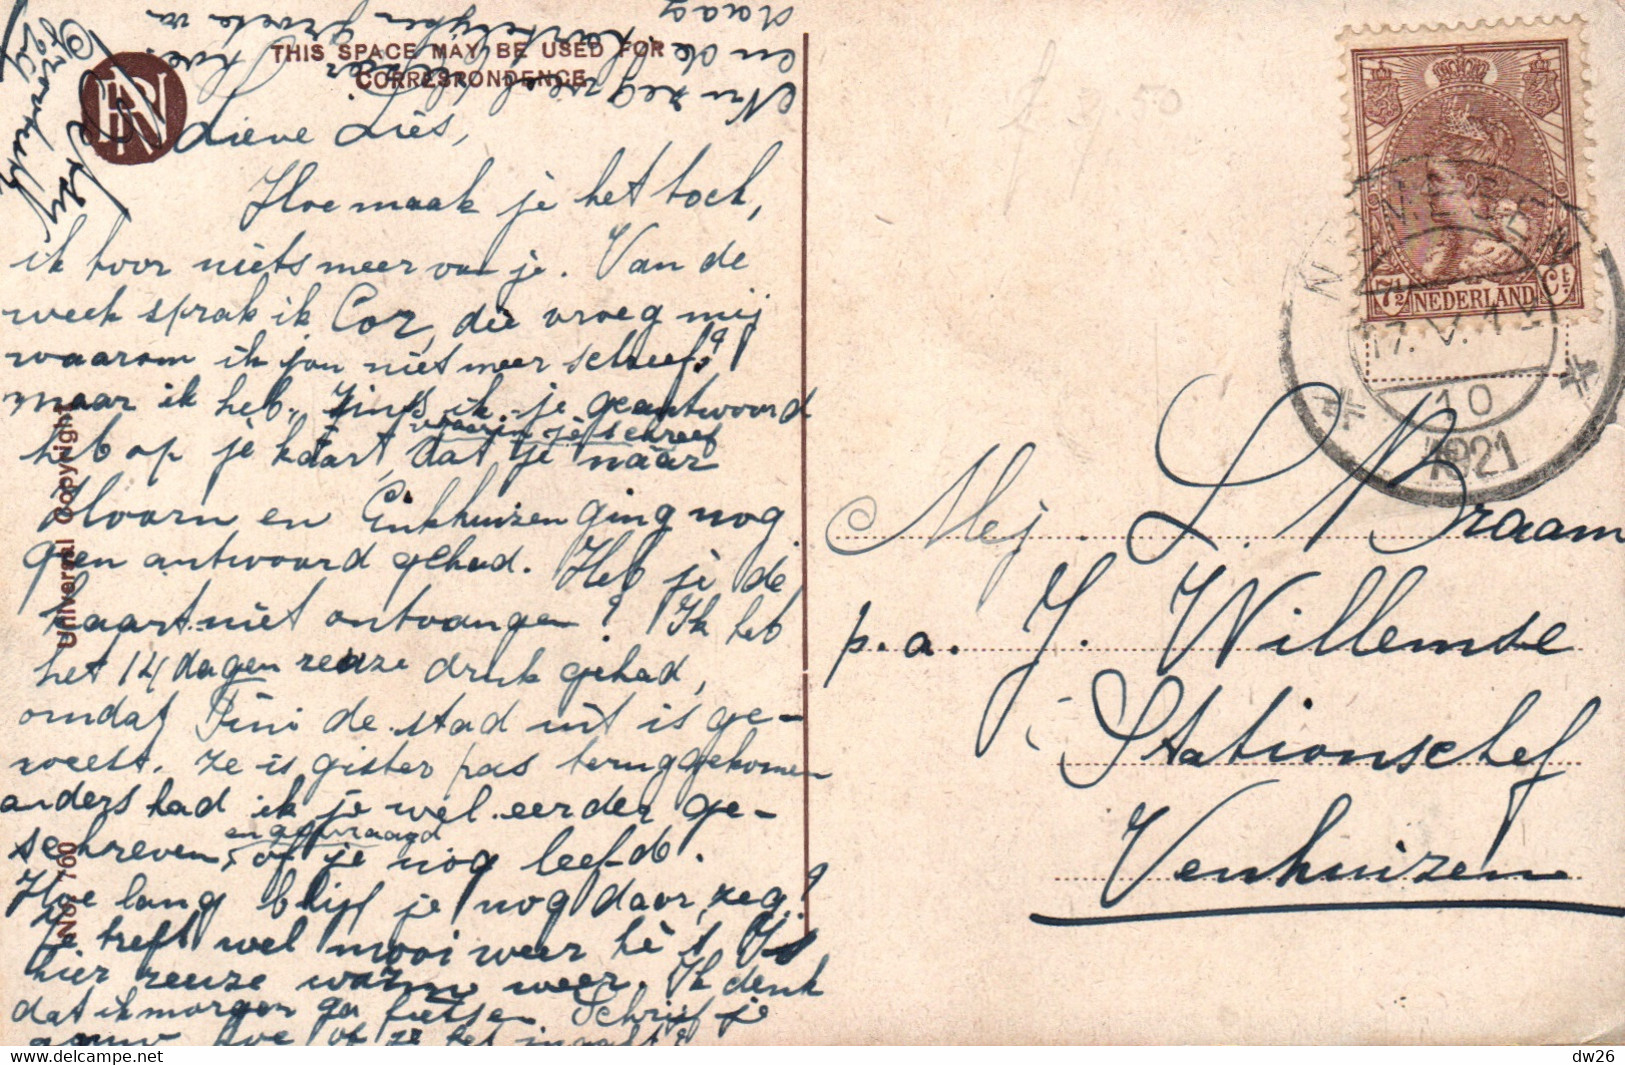 THIS SPACE MAY BE USED FOR
CORRESPONDENCE
Lieve Lies,
Hoe maak je het toch,
ik hoor niets meer van je. Van de
week sprak ik Cor, die vroeg mij
waarom ik jou niet meer schreef?
maar ik heb, ik je geantwoord
heb op je kaart, waarin je schreef
dat je naar
Hoorn en Enkhuizen ging nog
geen antwoord gehad. Heb je de
kaart niet ontvangen? Ik heb
het 14 dagen reuze druk gehad,
omdat Tini de stad uit is ge-
weest. Ze is gister pas teruggekomen
anders had ik je wel eerder ge-
schreven, en gevraagd
of je nog leefde.
Hoe lang blijf je nog daar, zeg?
Je treft wel mooi weer hè! Is
hier reuze warm weer. Ik denk
dat ik morgen ga fietsen. Schrijf je
gauw hoe of je het maakt?
Nu zeg
en de hartelijke groete van
Universal Copyright
No. 760
f 9.50
7½ NEDERLAND Ct
17.V.1
10
1921
Mej. L. Braam
p.a. J. Willemse
Stationschef
Venhuizen
delcampe.net
dw26